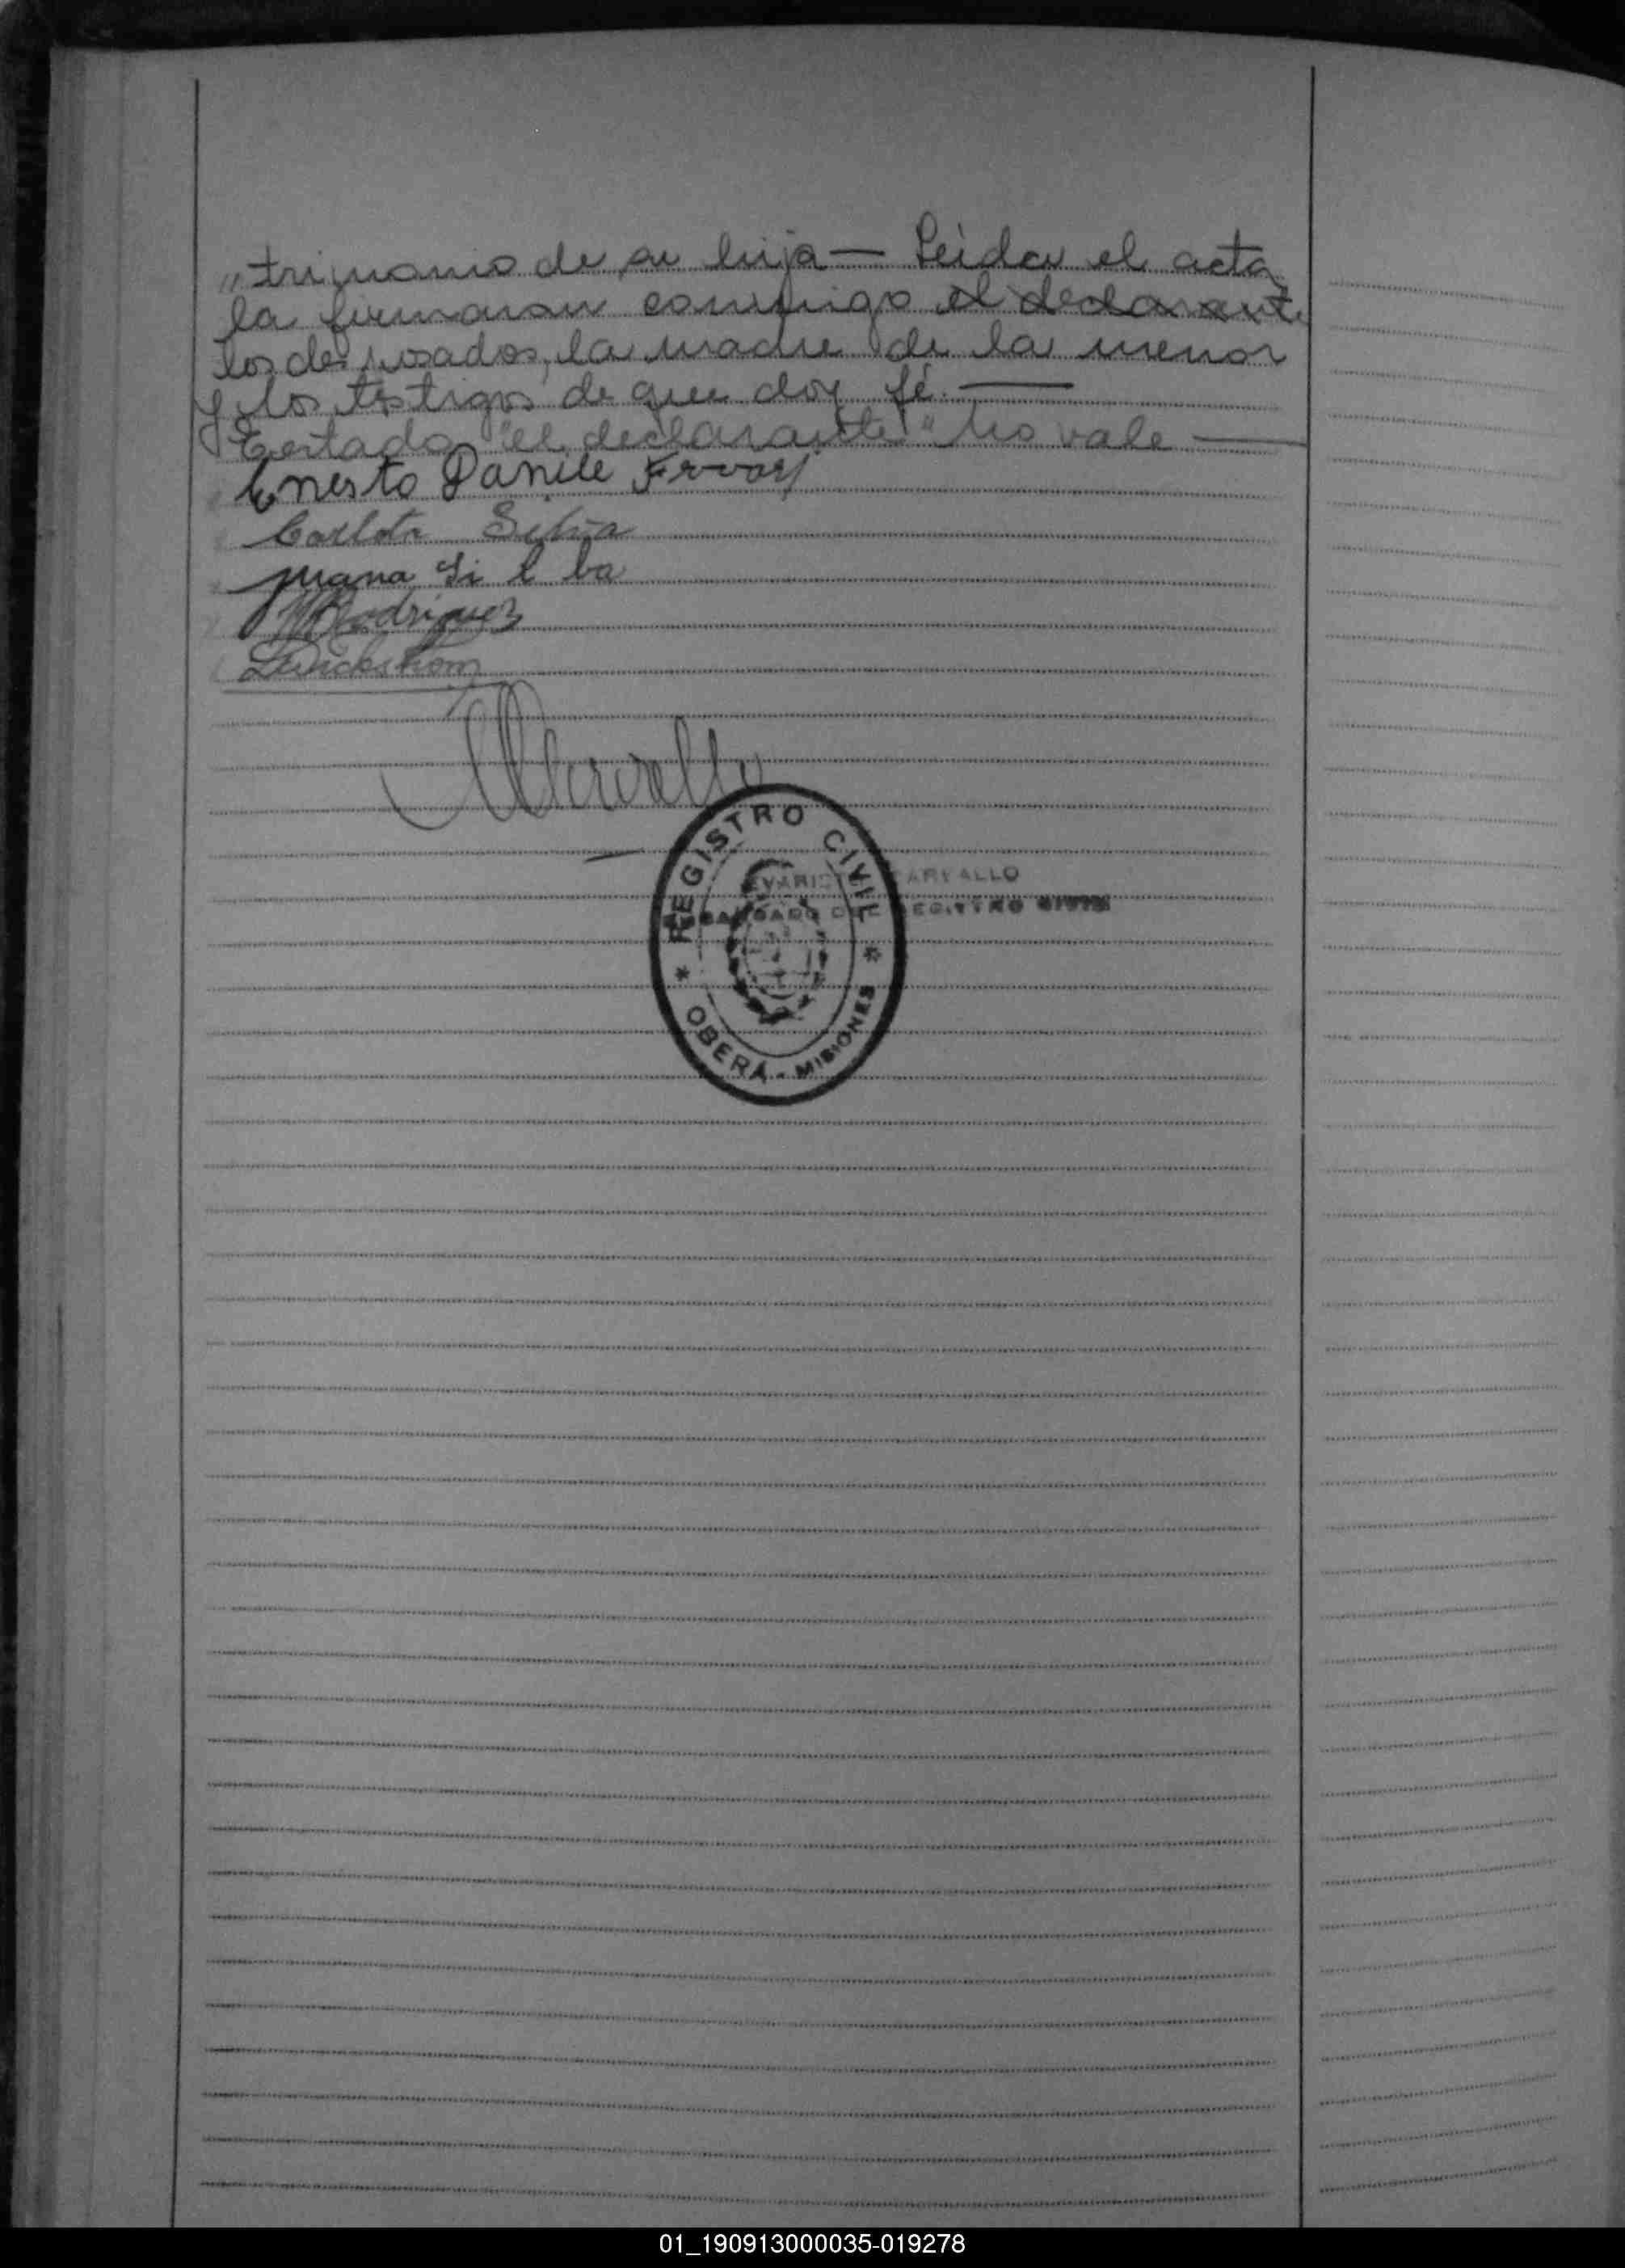 "trimonio de su hija — Leida el acta
la firmaron conmigo el declarante
los desposados, la madre de la menor
y los testigos de que doy fé. —
Testado "el declarante" No vale —
Ernesto Daniel
Carlota Silva
juana Si l ba
Rodriguez
REGISTRO CIVIL
EVARISTO CARVALLO
ENCARGADO DEL REGISTRO CIVIL
OBERÁ - MISIONES
01_190913000035-019278